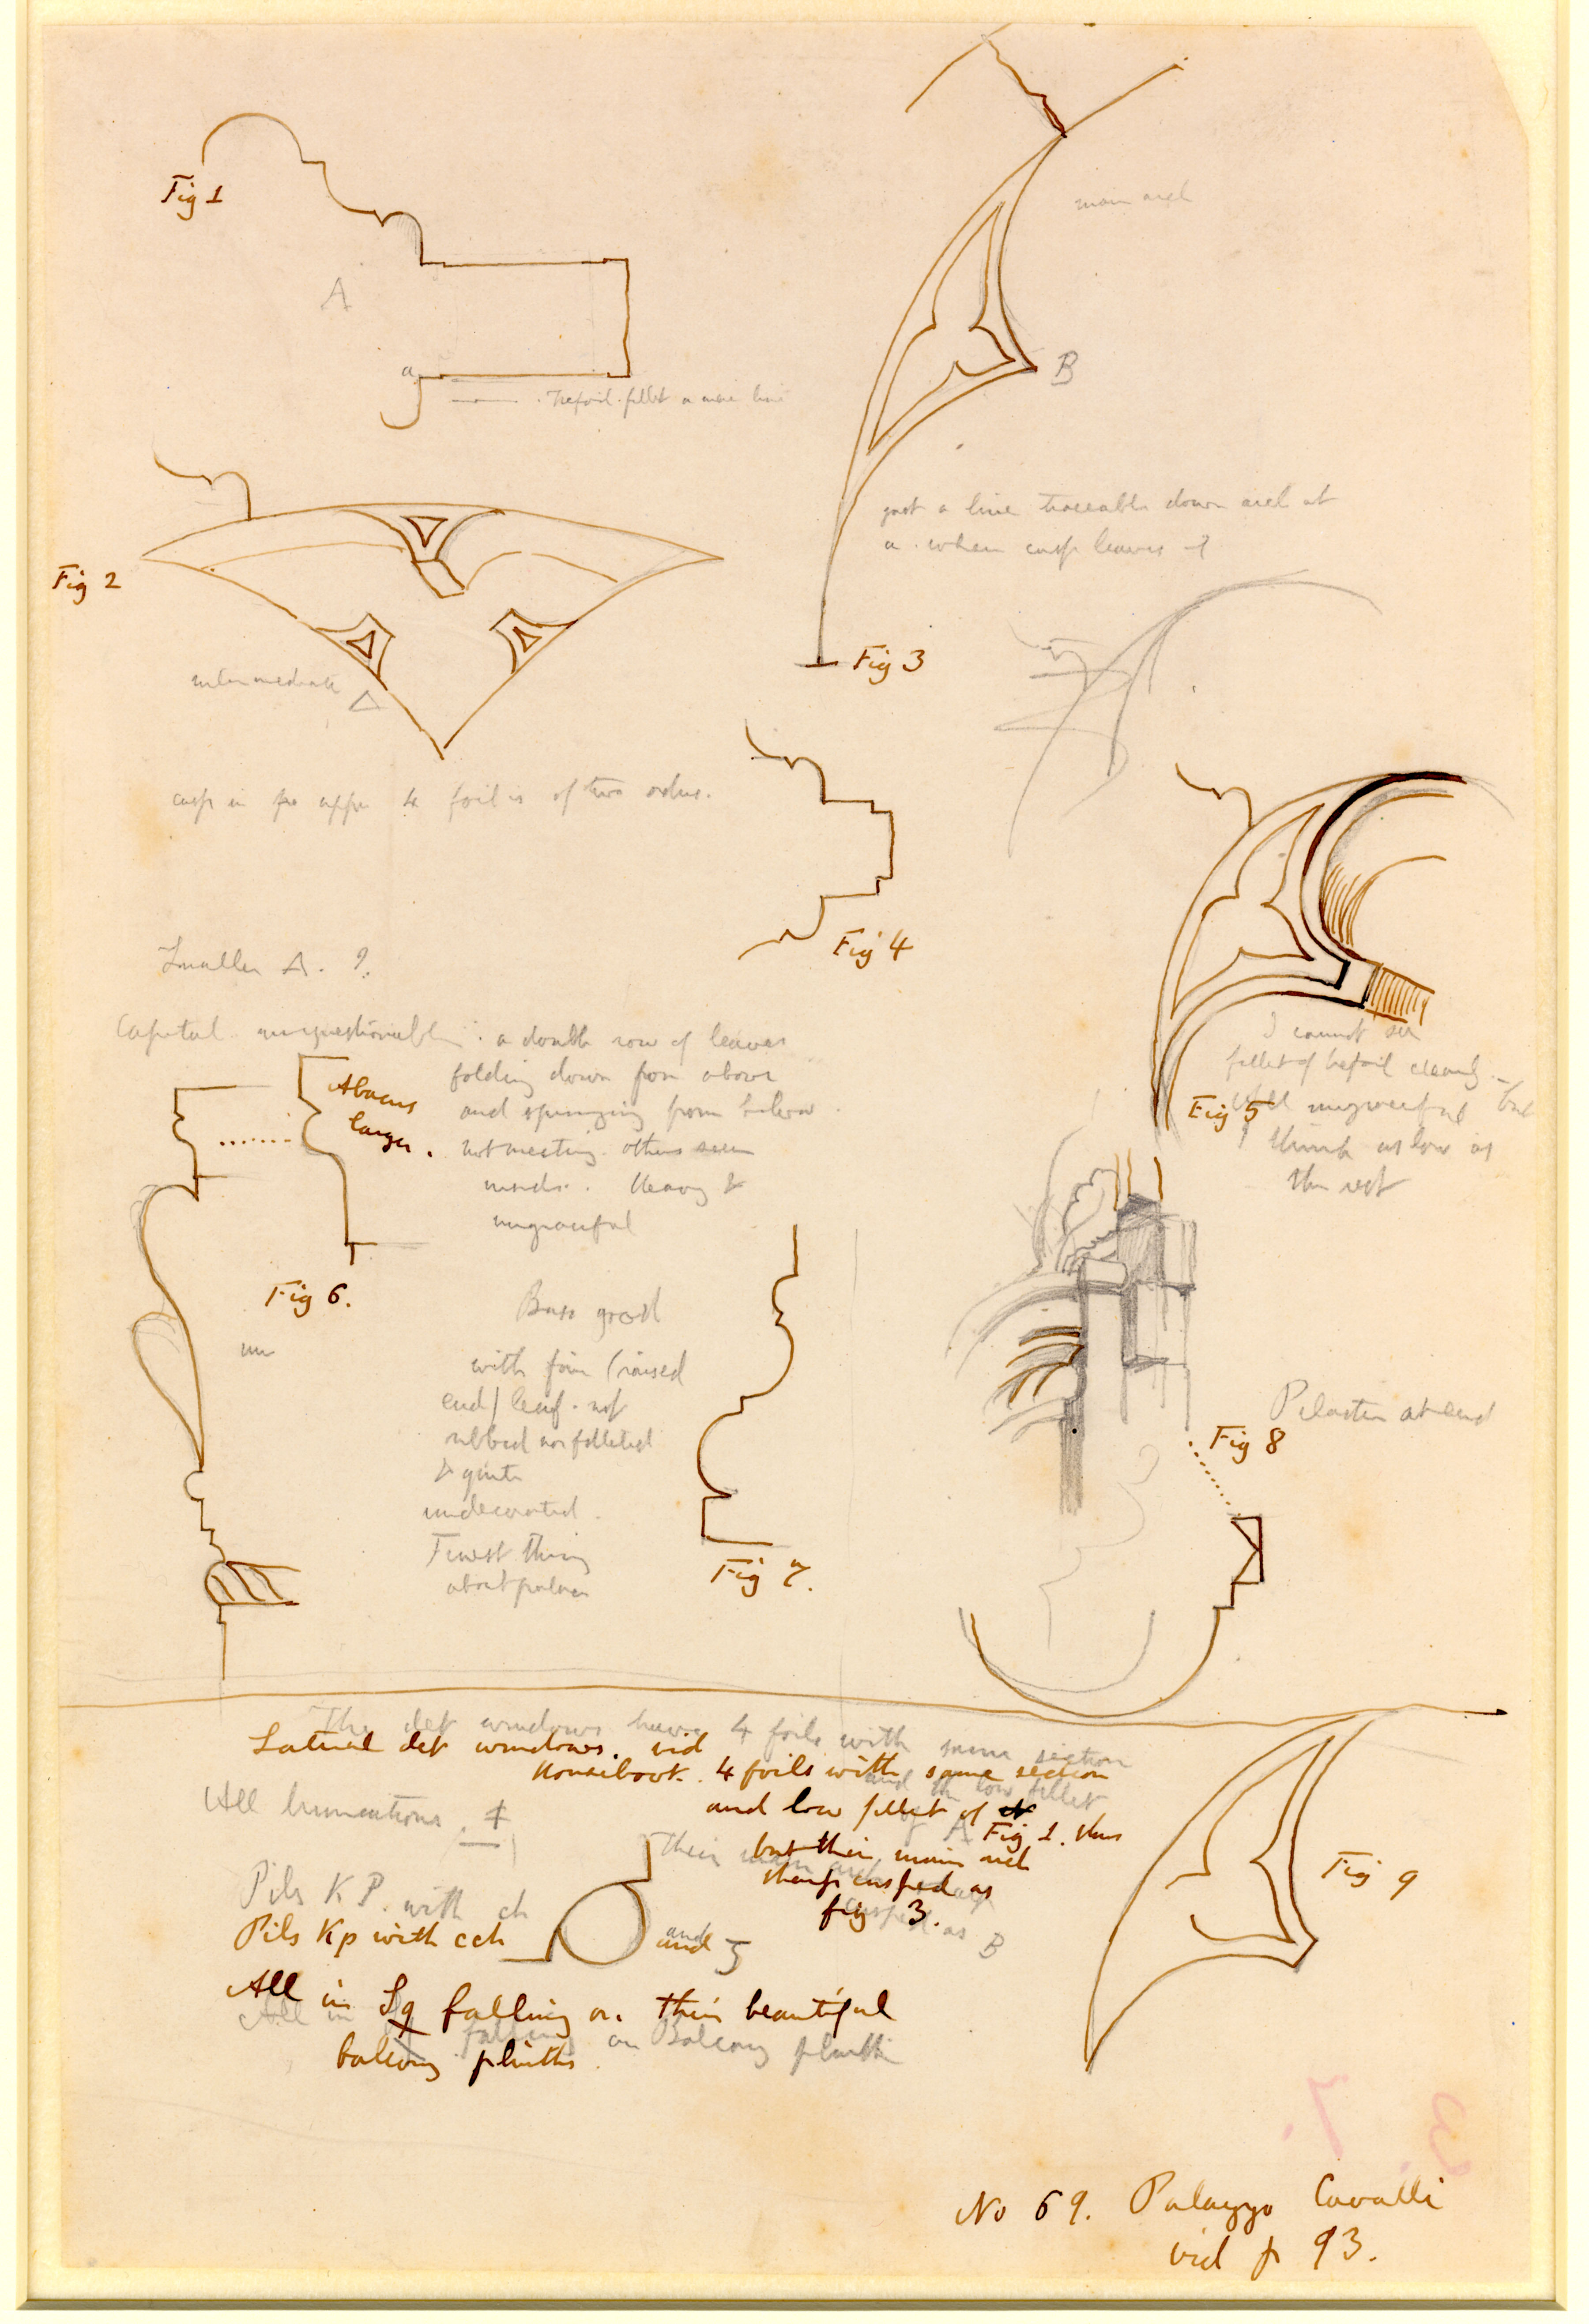 Fig 1
main arch
A
B
a
Trefoil. fillet a mere line
just a line traceable down arch at
a. when cusp leaves it
Fig 2
Fig 3
intermediate
cusp in the upper 4 foil is of two orders.
Fig 4
Smaller A. ?
Capital unquestionable: a double row of leaves
folding down from above
and springing from below.
not meeting. others seen
inside. Heavy &
ungraceful
Abacus
larger.
I cannot see
fillet of trefoil clearly - but
ungraceful
think as low as
the rest
Fig 5
Fig 6.
Base good
with fair (raised
end) leaf. not
ribbed nor filleted
& quite
undecorated.
Finest thing
about palace
Fig 7.
Pilaster at end
Fig 8
The det windows have 4 foils with same section
and the low fillet
of A
Their main arch
cusped as B
Lateral det windows. vid
Housebook. 4 foils with same section
and low fillet of Fig 1. thus
but their main arch
sharp cusped as
fig 3.
All truncations. 4
Pils K P. with ch
Pils Kp with cch
and
and 5
All in Sq falling on their beautiful
balcony plinths.
All in falling on Balcony plinth
Fig 9
7.
3.
No 69. Palazzo Cavalli
vid p 93.